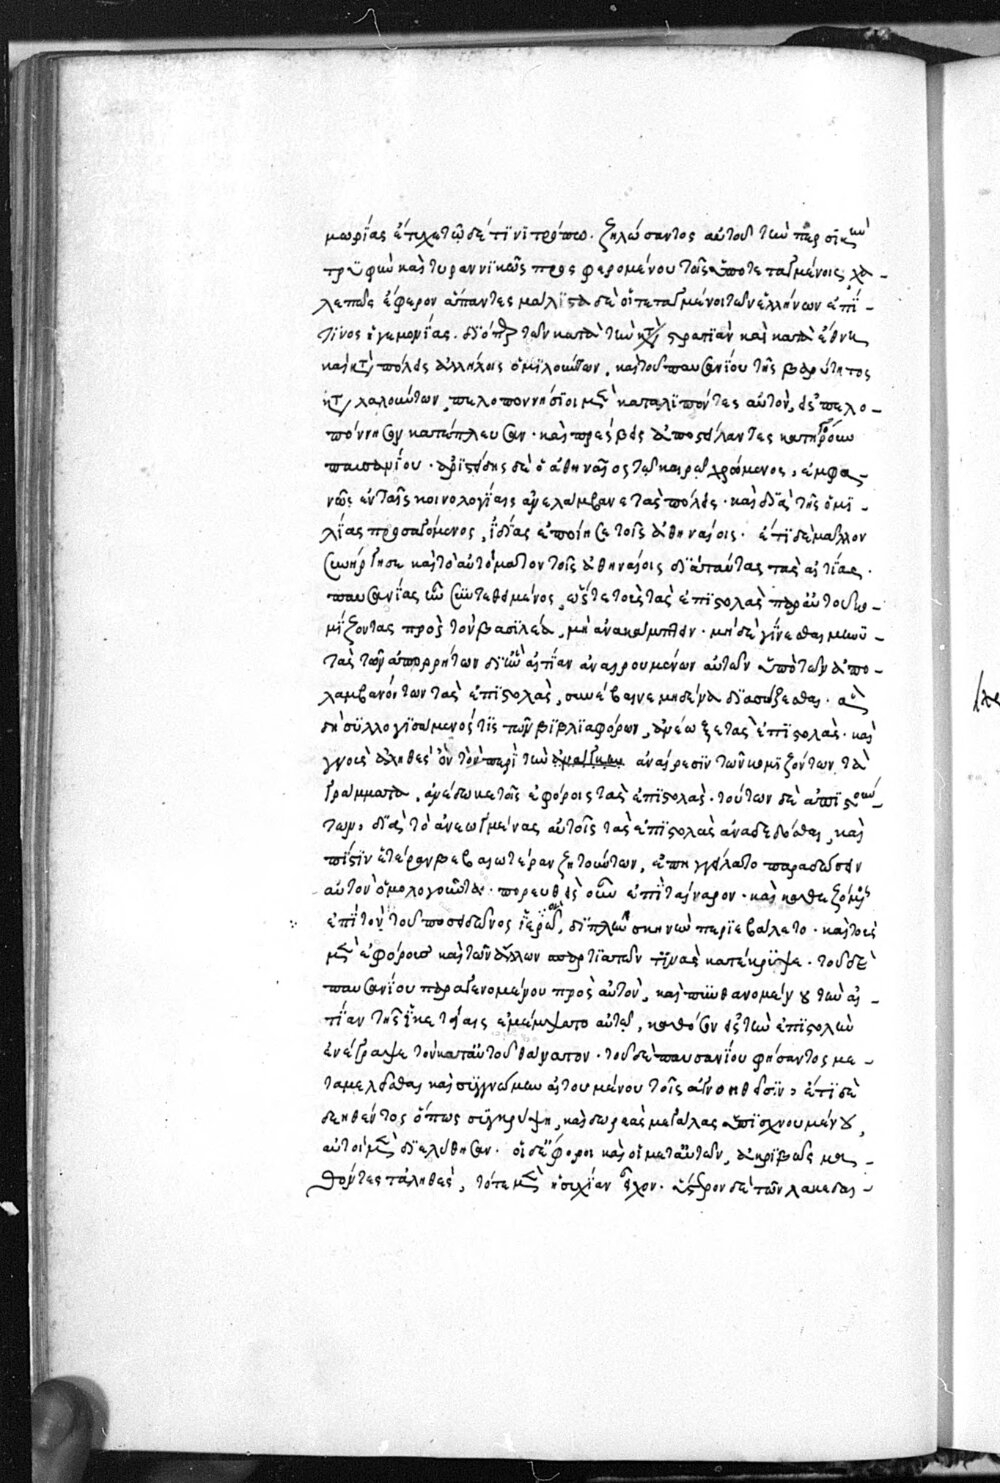 μωρίας ἔτυχε τῶδέ τινι τρόπω. ζηλώσαντος αὐτοῦ τὴν περσικὴν
τρυφὴν καὶ τυραννικῶς προσφερομένου τοῖς ὑποτεταγμένοις, χα-
λεπῶς ἔφερον ἅπαντες μάλιστα δὲ οἱ τεταγμένοι τῶν ἑλλήνων ἐπί
τινος ἡγεμονίας. διόπερ τῶν κατὰ τὴν στρατιὰν καὶ κατὰ ἔθνη
καὶ κατὰ πόλεις ἀλλήλοις ὁμιλούντων, καὶ τοῦ παυσανίου τῆς βαρύτητος
κατα λαλούντων, πελοποννήσιοι μὲν καταλιπόντες αὐτὸν, εἰς πελο-
πόννησον κατέπλευσαν. καὶ πρέσβεις ἀποστείλαντες κατηγόρουν
παυσανίου. ἀριστείδης δὲ ὁ ἀθηναῖος τῶ καιρῶ χρώμενος, ἐμφα-
νῶς ἐν ταῖς κοινολογίαις ἀνελάμβανε τὰς πόλεις. καὶ διὰ τῆς ὁμι-
λίας προσαγόμενος, ἰδίας ἐποίησε τοῖς ἀθηναίοις. ἔτι δὲ μᾶλλον
συνήργησε καὶ τὸ αὐτόματον τοῖς ἀθηναίοις διὰ ταύτας τὰς αἰτίας.
παυσανίας ἦν συντεθειμένος, ὥστε τοὺς τὰς ἐπιστολὰς παρ' αὐτοῦ κο-
μίζοντας πρὸς τὸν βασιλέα, μὴ ἀνακάμπτειν. μηδὲ γίνεσθαι μηνυ-
τὰς τῶν ἀπορρήτων δι' ἣν αἰτίαν ἀναιρουμένων αὐτῶν ὑπὸ τῶν ἀπο-
λαμβανόντων τὰς ἐπιστολὰς, συνέβαινε μηδένα διασώζεσθαι. ἃ
δὴ συλλογισάμενός τις τῶν βιβλιαφόρων, ἀνέωξε τὰς ἐπιστολὰς. καὶ
γνοὺς ἀληθὲς ὂν τὸ περὶ τὴν ἀναίρεσιν τῶν κομιζόντων τὰ
γράμματα, ἀνέδωκε τοῖς ἐφόροις τὰς ἐπιστολὰς. τούτων δὲ ἀπιστούν-
των, διὰ τὸ ἀνεωγμένας αὐτοῖς τὰς ἐπιστολὰς ἀναδεδόσθαι, καὶ
πίστιν ἑτέραν βεβαιωτέραν ζητούντων, ἐπηγγείλατο παραδώσειν
αὐτὸν ὁμολογοῦντα. πορευθεὶς οὖν ἐπὶ ταίναρον. καὶ καθεζόμενος
ἐπὶ τὸν τοῦ ποσειδῶνος ἱερῶ, διπλῆν σκηνὴν περιεβάλετο. καὶ τοὺς
μὲν ἐφόρους καὶ τῶν ἄλλων σπαρτιατῶν τινας κατέκρυψε. τοῦ δὲ
παυσανίου παραγενομένου πρὸς αὐτὸν, καὶ πυνθανομένου τὴν αἰ-
τίαν τῆς ἱκετείας ἐμέμψατο αὐτῶ, καθόσον εἰς τὴν ἐπιστολὴν
ἐνέγραψε τὸν κατ' αὐτοῦ θάνατον. τοῦ δὲ παυσανίου φήσαντος με-
ταμελεῖσθαι καὶ συγγνώμην αἰτουμένου τοῖς ἀγνοηθεῖσιν, ἔτι δὲ
δεηθέντος ὅπως συγκρύψη, καὶ δωρεὰς μεγάλας ὑπισχνουμένου,
αὐτοὶ μὲν διελύθησαν. οἱ δὲ ἔφοροι καὶ οἱ μετ' αὐτῶν, ἀκριβῶς μα-
θόντες τἀληθὲς, τότε μὲν ἡσυχίαν ἔσχον. ὕστερον δὲ τῶν λακεδαι-